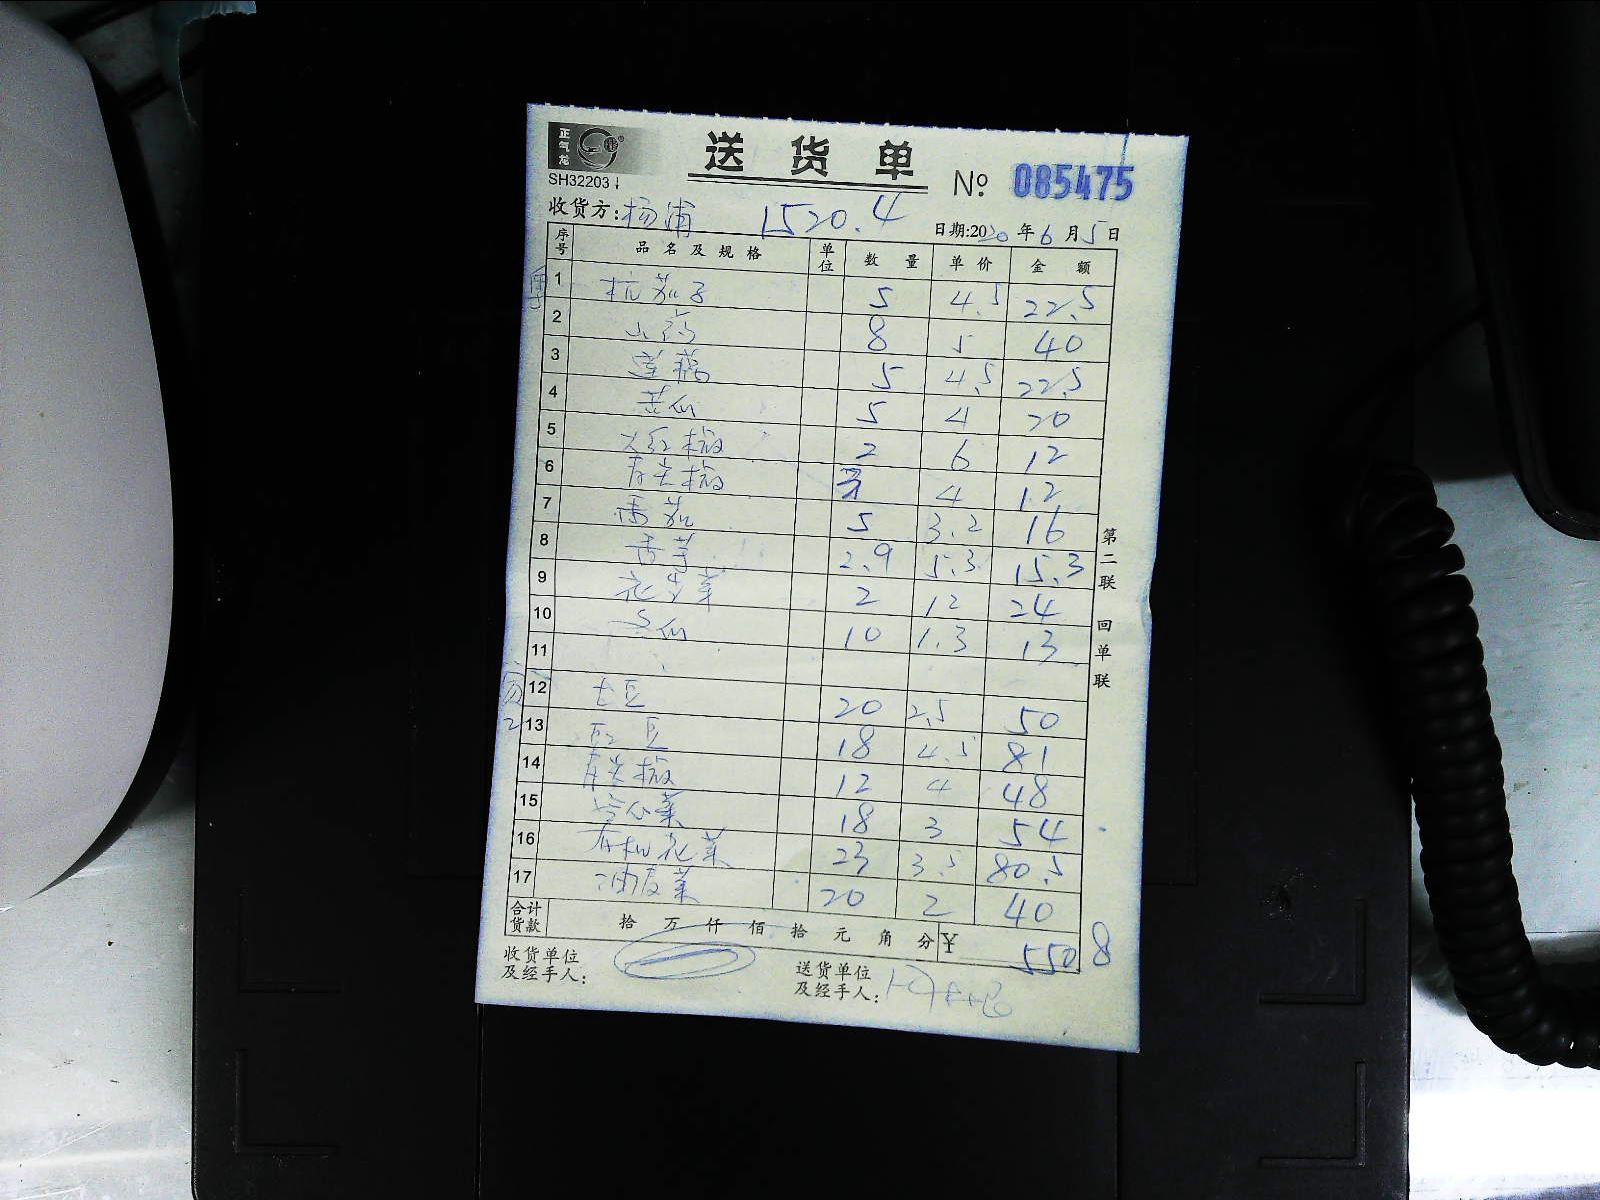 正气龙
SH32203
送货单
№ 085475
收货方:杨浦 1520.4
日期:2020年6月5日
序号 品名及规格 单位 数量 单价 金额
1 杭茄子 5 4.5 22.5
2 山药 8 5 40
3 莲藕 5 4.5 22.5
4 5 4 20
5 大红椒 2 6 12
6 青尖椒 4 12
7 番茄 5 3.2 16
8 香芋 2.9 5.3 15.3
9 2 12 24
10 冬瓜 10 1.3 13
11
12 土豆 20 2.5 50
13 豆 18 4.5 81
14 青尖椒 12 4 48
15 空心菜 18 3 54
16 有机花菜 23 3.5 80.5
17 油麦菜 20 2 40
合计货款 拾 万 仟 佰 拾 元 角 分 ¥ 550.8
收货单位及经手人:
送货单位及经手人:
第二联 回单联